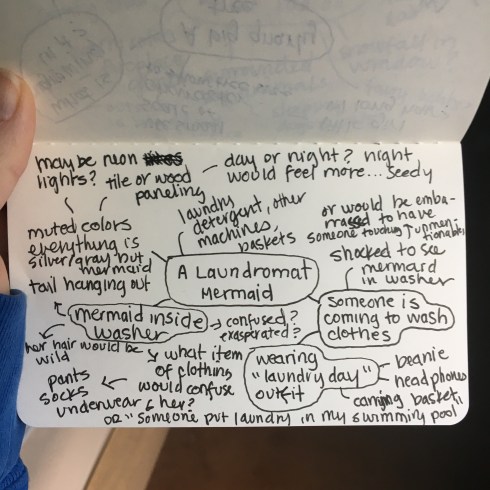 maybe neon
lights?
tile or wood
paneling
day or night? night
would feel more... seedy
muted colors
everything is
silver/gray but
mermaid
tail hanging out
laundry
detergent, other
machines,
baskets
or would be emba-
rrassed to have
someone touching unmen-
tionables
shocked to see
mermaid
in washer
A Laundromat
Mermaid
mermaid inside
washer
confused?
exasperated?
someone is
coming to wash
clothes
her hair would be
wild
what item
of clothing
would confuse
her?
pants
socks
underwear
wearing
"laundry day"
outfit
beanie
headphones
carrying basket
or "someone put laundry in my swimming pool"